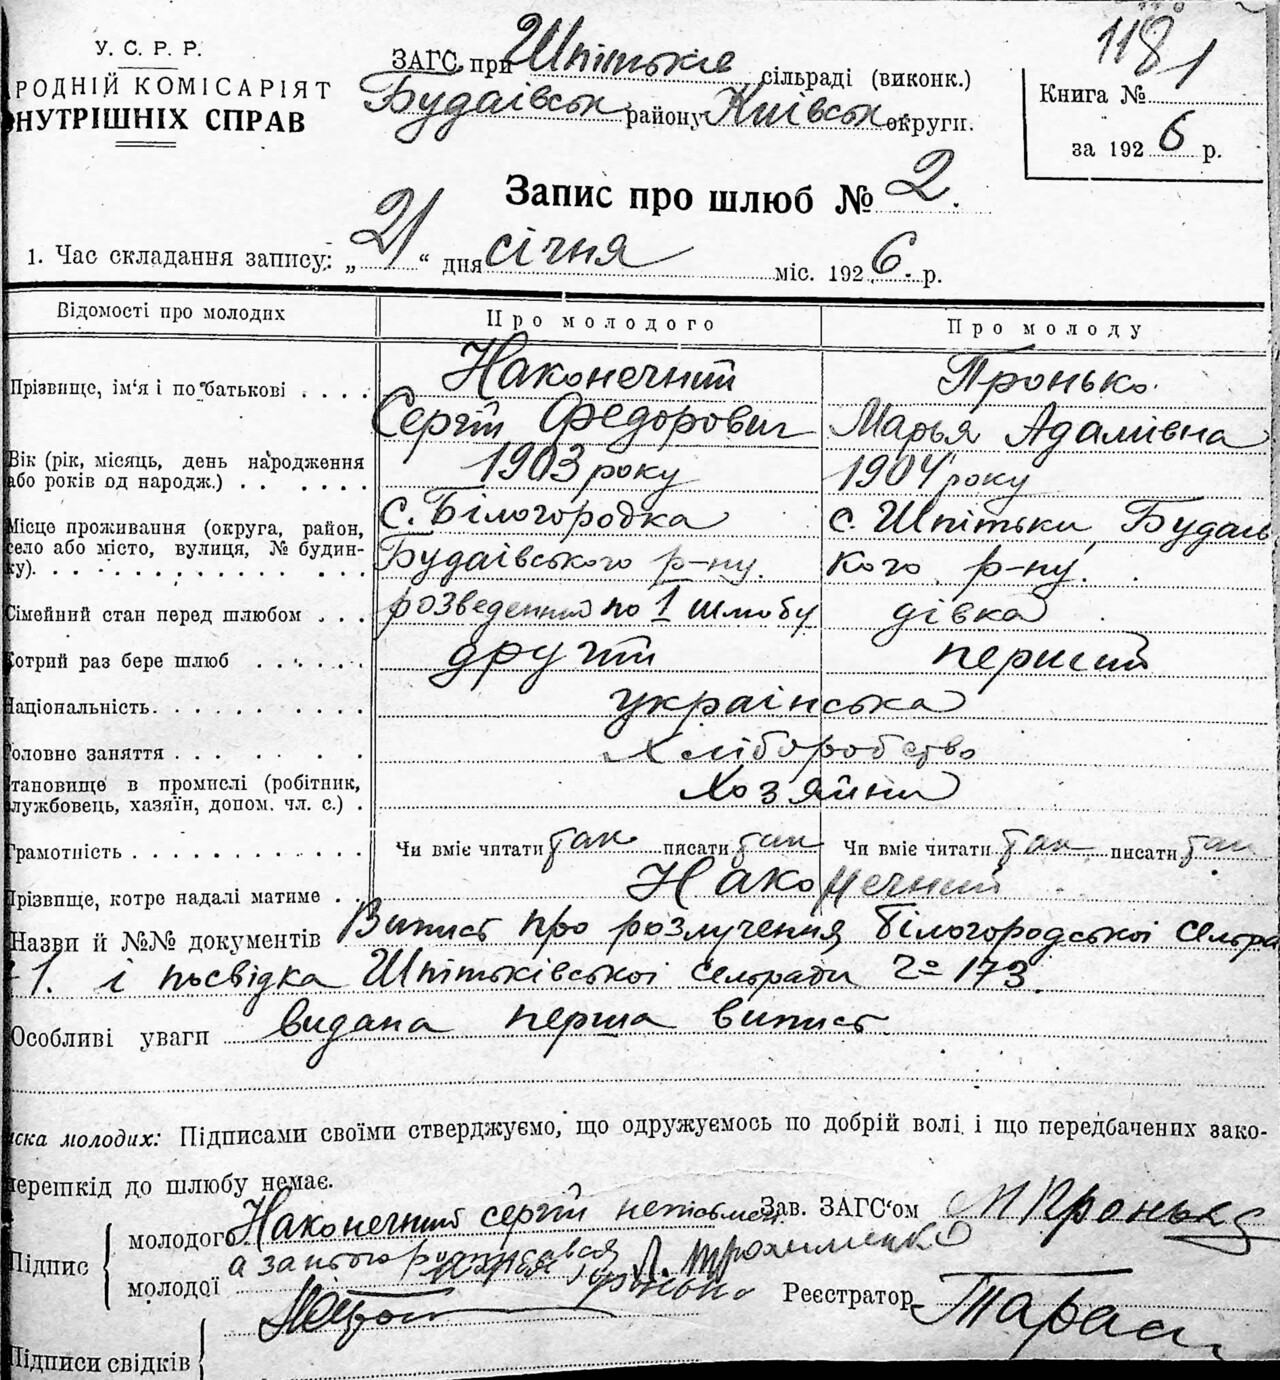 У. С. Р. Р.
РОДНІЙ КОМІСАРІЯТ
НУТРІШНІХ СПРАВ
ЗАГС при Шпітьків сільраді (виконк.)
Будаївськ району Київськ округи.
1181
Книга №
за 1926 р.
Запис про шлюб № 2.
1. Час складання запису: „21“ дня січня міс. 1926. р.
Відомості про молодих Про молодого Про молоду
Прізвище, ім‘я і по батькові Наконечний Пронько
Сергій Федорович Марья Адамівна
Вік (рік, місяць, день народження 1903 року 1904 року
або років од народж.)
Місце проживання (округа, район, с. Білогородка с. Шпітьки, Будаїв
село або місто, вулиця, № будин- Будаївського р-ну. кого р-ну.
ку).
Сімейний стан перед шлюбом розведений по 1 шлюбу дівка
Котрий раз бере шлюб другий перший
Національність українська
Головне заняття Хліборобство
тановище в промислі (робітник, Хозяйни
лужбовець, хазяїн, допом. чл. с.)
Грамотність Чи вміє читати так писати так Чи вміє читати так писати так
Прізвище, котре надалі матиме Наконечний
Назви й №№ документів Випись про розлучення Білогородської сельра
1. і посвідка Шпітьківської сельради № 173.
Особливі уваги видана перша випись
ска молодих: Підписами своїми стверджуємо, що одружуємось по добрій волі і що передбачених зако-
перешкід до шлюбу немає.
Підпис
молодого Наконечний сергій неписьмен
а за нього росписався Л. Трохименко
молодої Пронько
Зав. ЗАГС‘ом М Пронько
Реєстратор Тарас
Підписи свідків